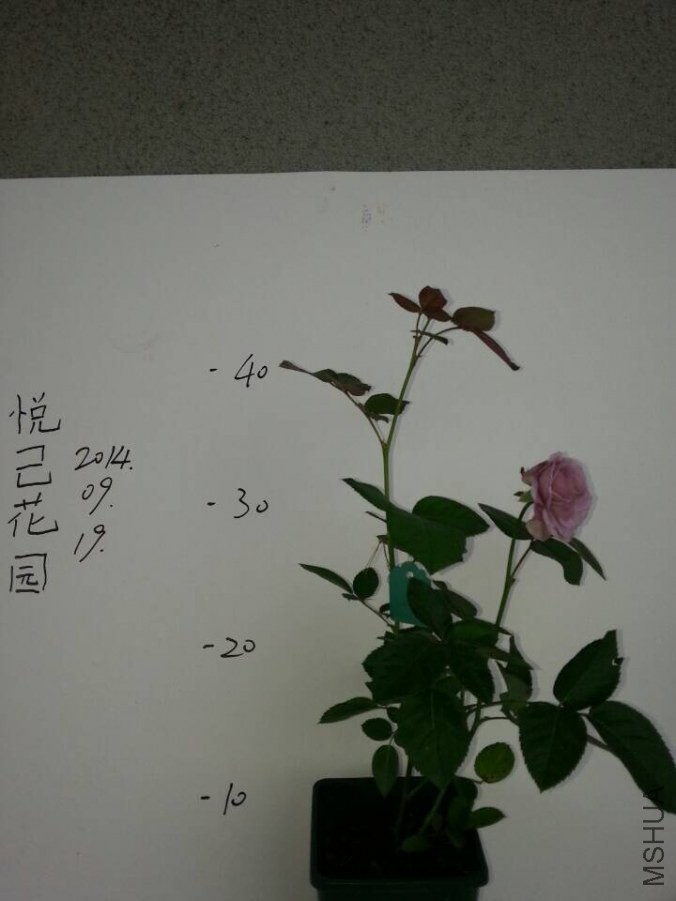 悦己花园
2014.
09.
19.
- 40
- 30
- 20
- 10
MSHUA